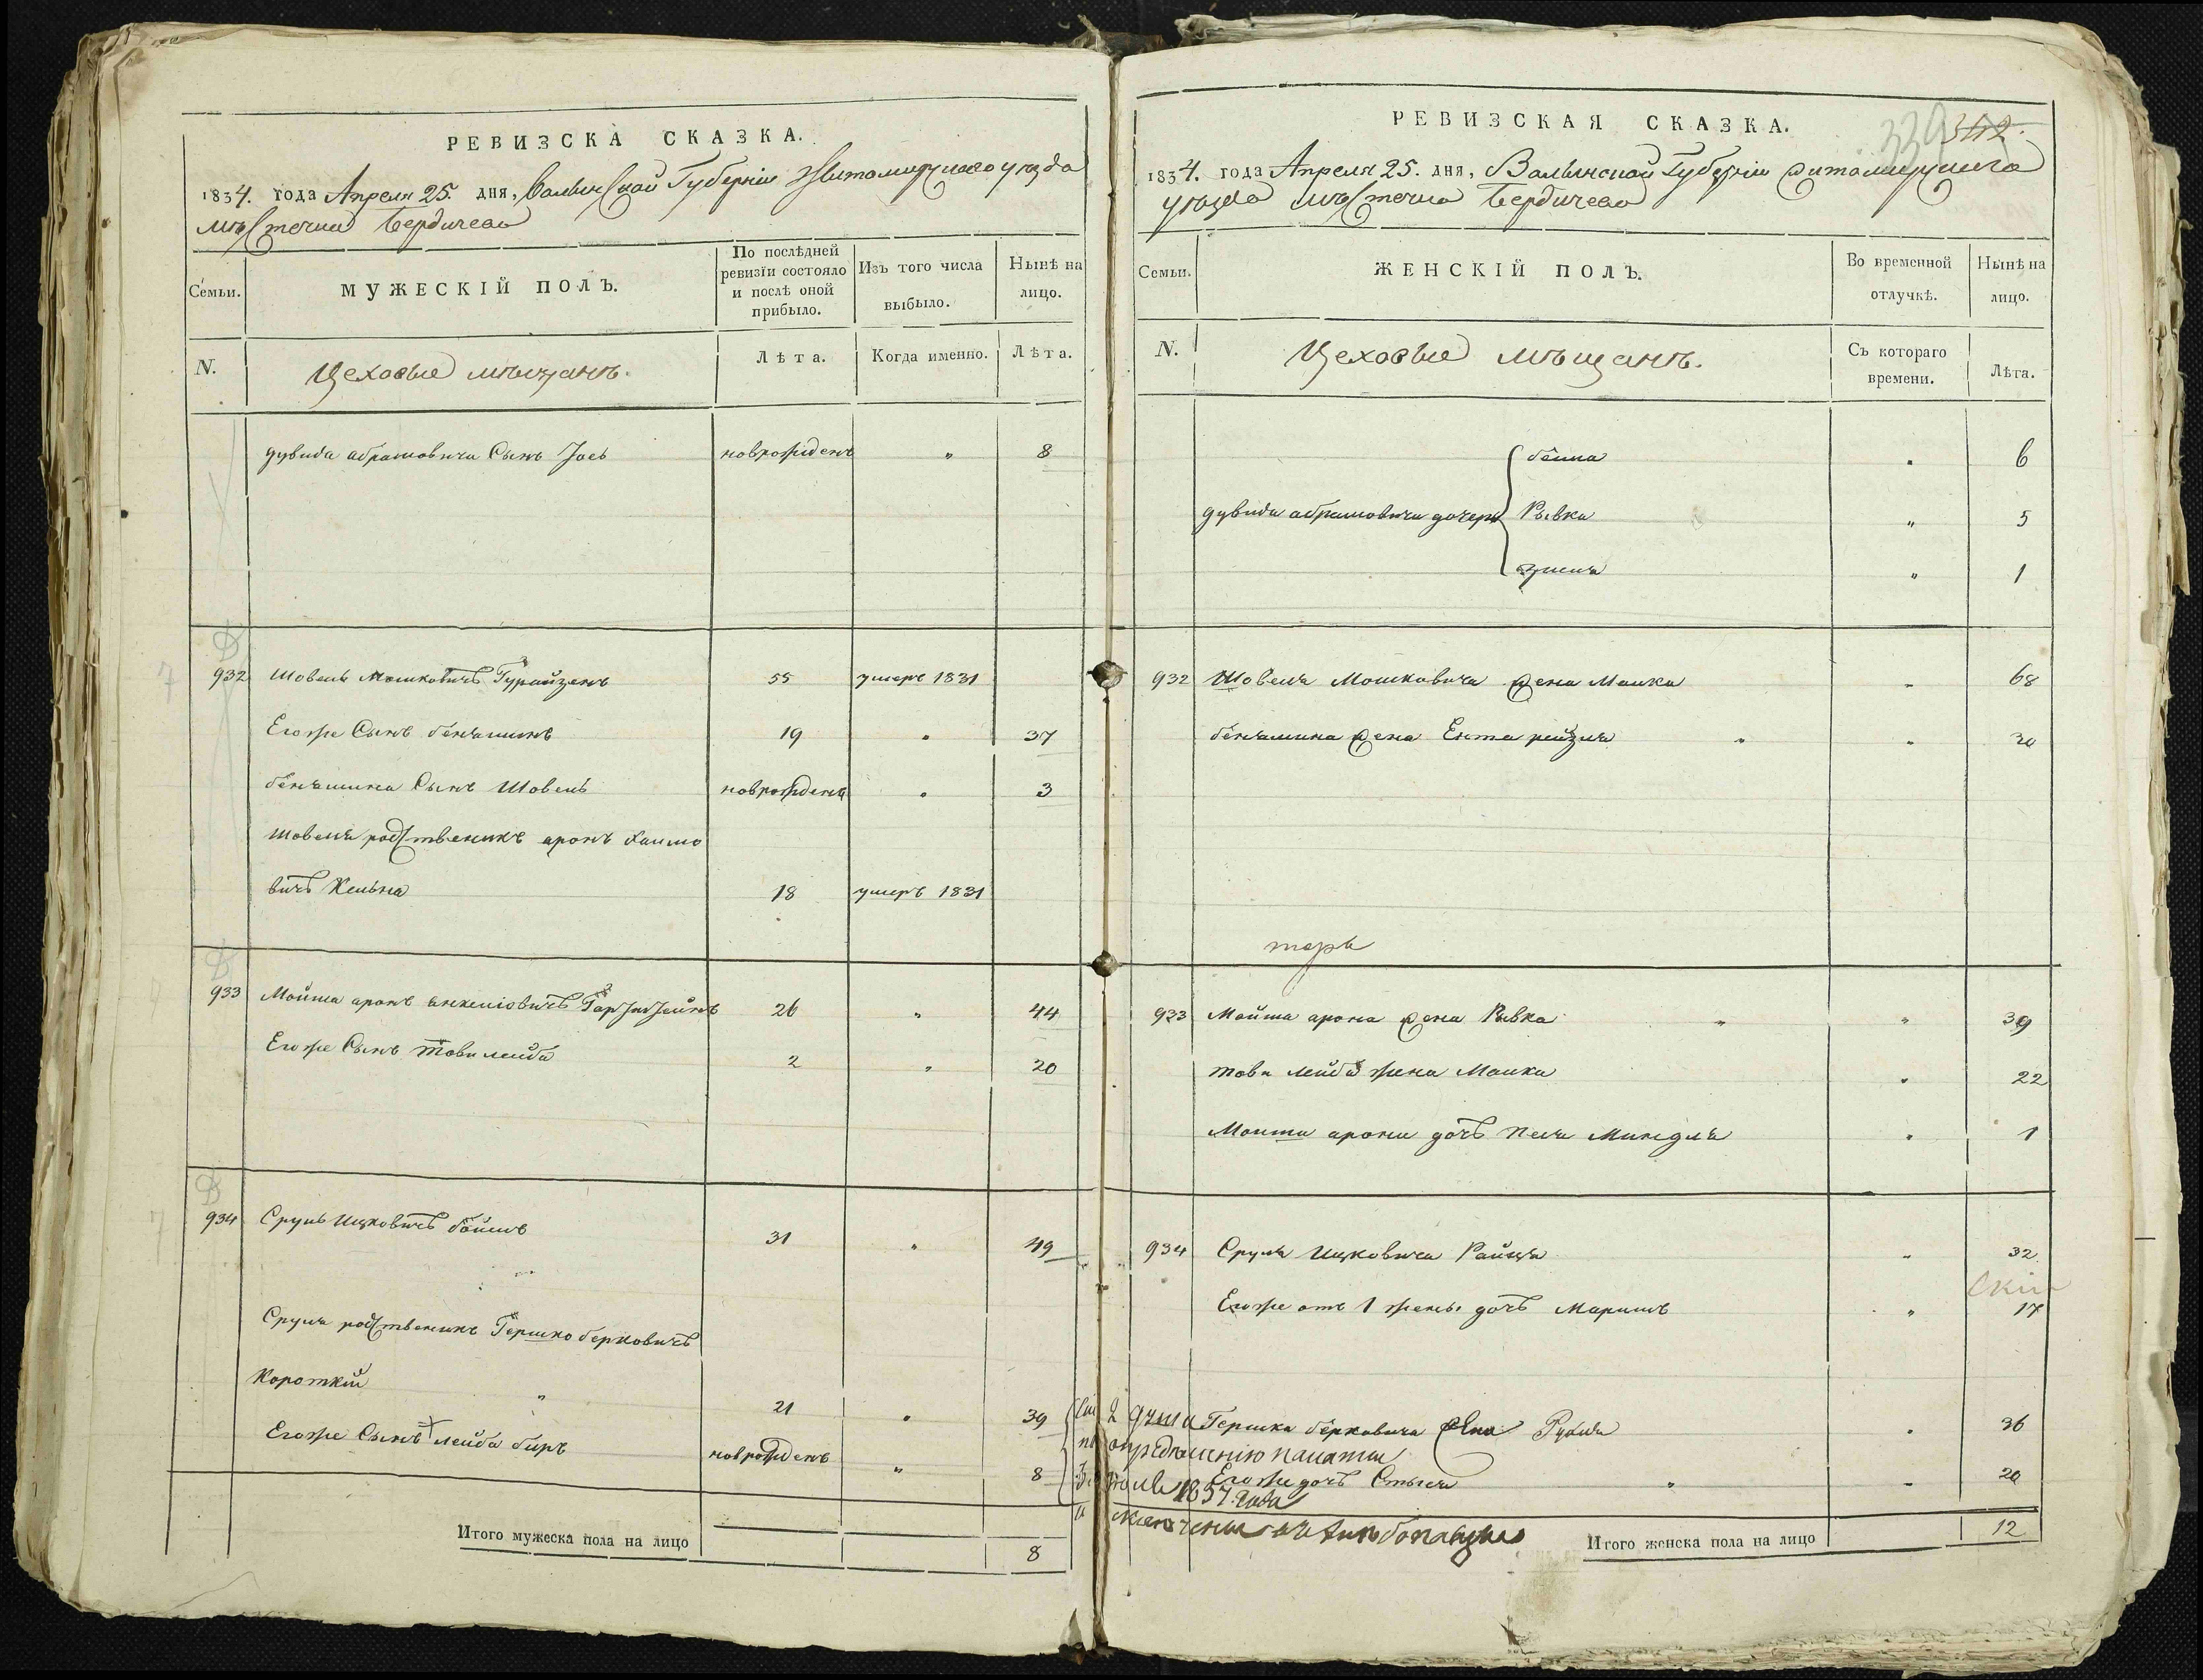 РЕВИЗСКА СКАЗКА.
1834. года Апреля 25. дня, Волынской Губернiи Житомирскаго уѣзда
мѣстечка Бердичева
Семьи.
МУЖЕСКІЙ ПОЛЪ.
По послѣдней ревизїи состояло и послѣ оной прибыло.
Изъ того числа выбыло.
Нынѣ на лицо.
N.
Цеховые мѣщанъ.
Лѣта.
Когда именно.
Лѣта.
дувида абрамовича Сынъ Iось новорожденъ " 8
932 Шовель Мошковичъ Гурайзенъ 55 умеръ 1831
Егоже Сынъ бенъяминъ 19 " 37
бенъямина Сынъ Шовель новорожденъ " 3
Шовеля родственикъ аронъ Хаимо
вичъ 18 умеръ 1831
933 Мойша аронъ 26 " 44
Егоже Сынъ Тови лейба 2 " 20
934 Сруль Ицковичъ 31 " 49
Сруля родственикъ Гершко берковичъ
Короткiй " 21 " 39
Егоже Сынъ лейба беръ новорожденъ " 8
Итого мужеска пола на лицо 8
РЕВИЗСКАЯ СКАЗКА.
339 342.
1834. года Апреля 25. дня, Волынской Губернiи Житомирскаго
уѣзда мѣстечка Бердичева
Семьи.
ЖЕНСКІЙ ПОЛЪ.
Во временной отлучкѣ.
Нынѣ на лицо.
N.
Цеховые мѣщанъ.
Съ котораго времени.
Лѣта.
бейла " 6
дувида абрамовича дочери Рывка " 5
" 1
932 Шовеля Мошковича жена Малка " 68
бенъямина жена Ента рейзля " " 30
933 Мойша арона жена Рывка " " 39
тови лейба жена Малка " 22
Мойша арона дочь Песя Миндля " 1
934 Сруля Ицковича Райця " 32
Егоже отъ 1 жены дочь Маримъ " 17
2 души Гершка берковича жена Рухля " 36
по опредѣленiю палаты
Егоже дочь Стыся " " 20
1837. года
Итого женска пола на лицо 12